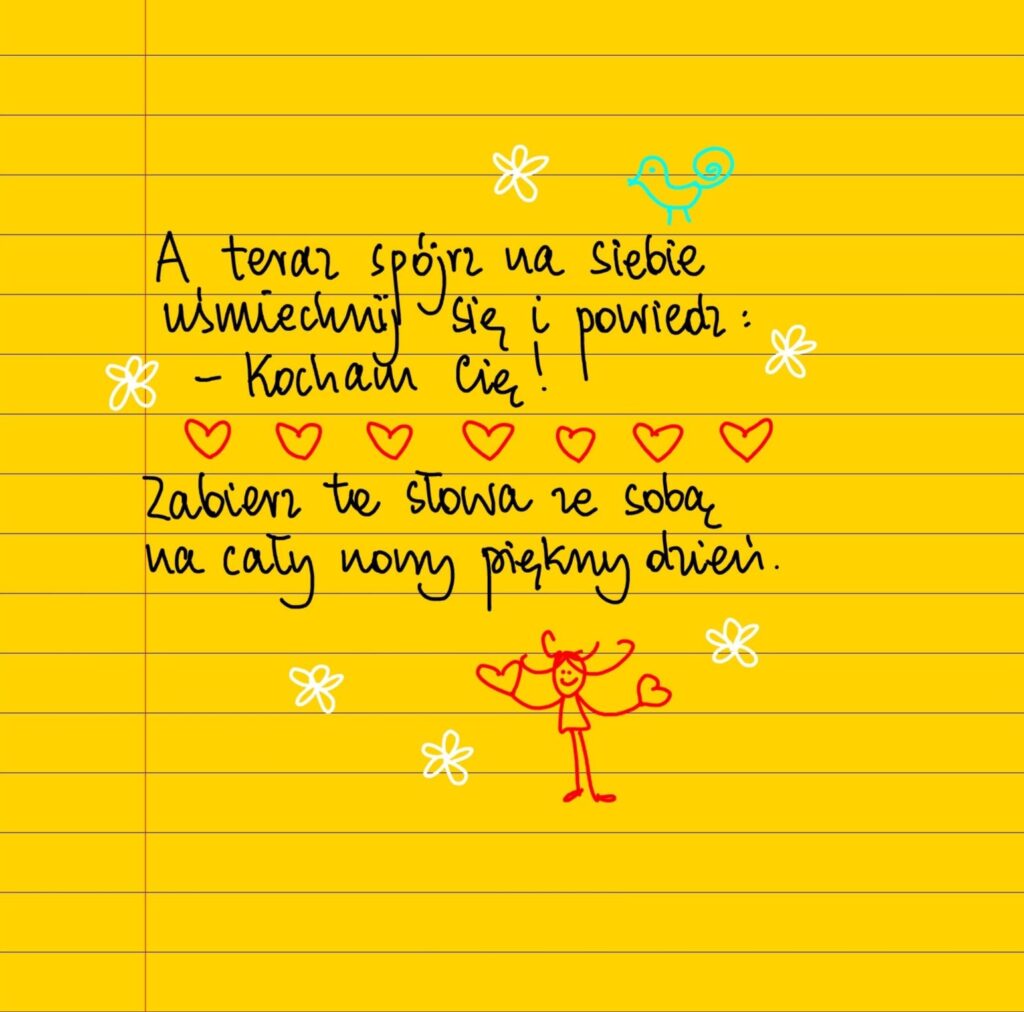 A teraz spójrz na siebie
uśmiechnij się i powiedz:
- Kocham Cię!
Zabierz te słowa ze sobą
na cały nowy piękny dzień.